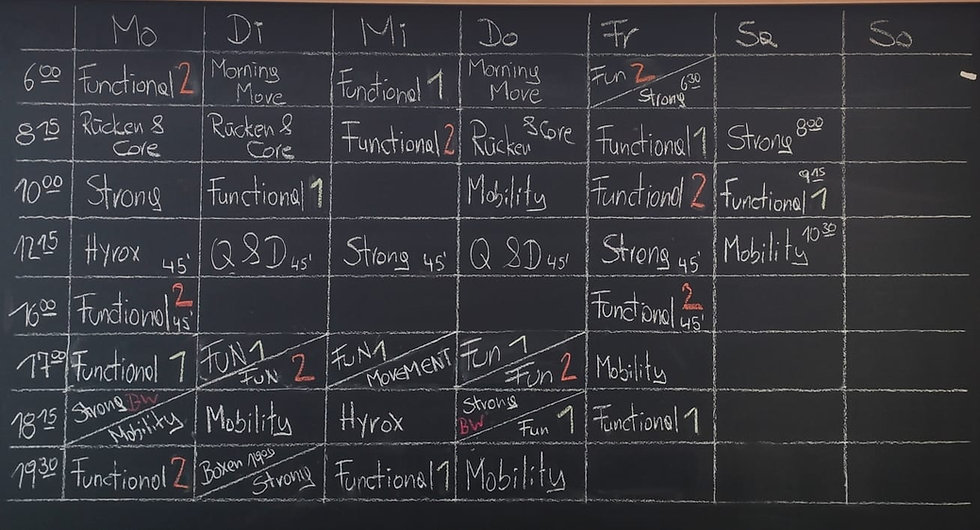 Mo Di Mi Do Fr Sa So
600 Functional 2 Morning Move Functional 1 Morning Move Fun 2 Strong 630
815 Rücken & Core Rücken & Core Functional 2 Rücken & Core Functional 1 Strong 800
1000 Strong Functional 1 Mobility Functional 2 Functional 1 915
1215 Hyrox 45' Q&D 45' Strong 45' Q&D 45' Strong 45' Mobility 1030
1600 Functional 2 45' Functional 2 45'
1700 Functional 1 FUN 1 FUN 2 FUN 1 MOVEMENT Fun 1 Fun 2 Mobility
1815 Strong BW Mobility Mobility Hyrox Strong BW Fun 1 Functional 1
1930 Functional 2 Boxen 1905 Strong Functional 1 Mobility